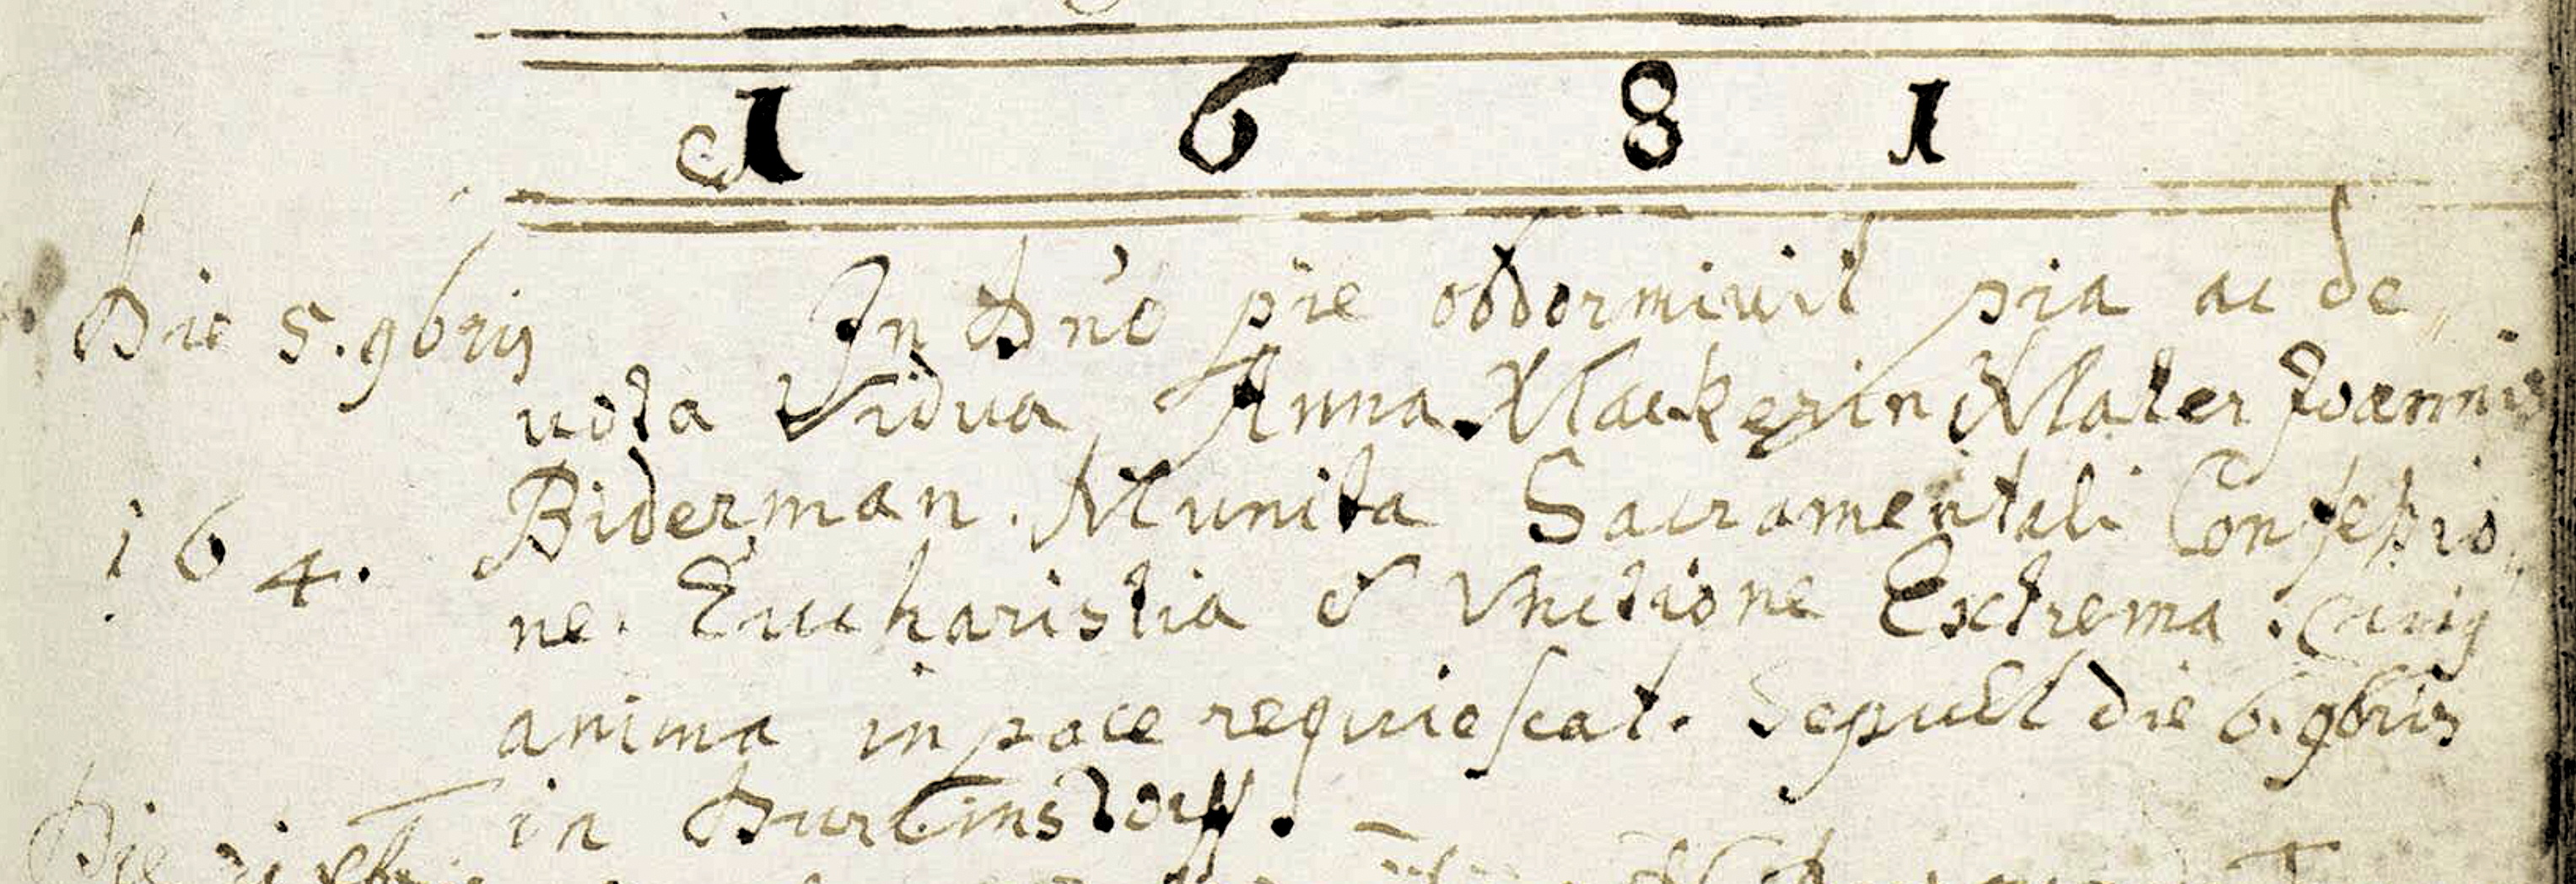 1 6 8 1
Die 5. 9bris In Dn'o pie obdormivit pia ac de„
uota Vidua Anna Mackerin Mater Joannis
Biderman. Munita Sacramentali Confessio„
164.
ne. Eucharistia & Vnctione Extrema. Cuius
anima in pace requiescat. Sepult die 6. 9bris
in
Die